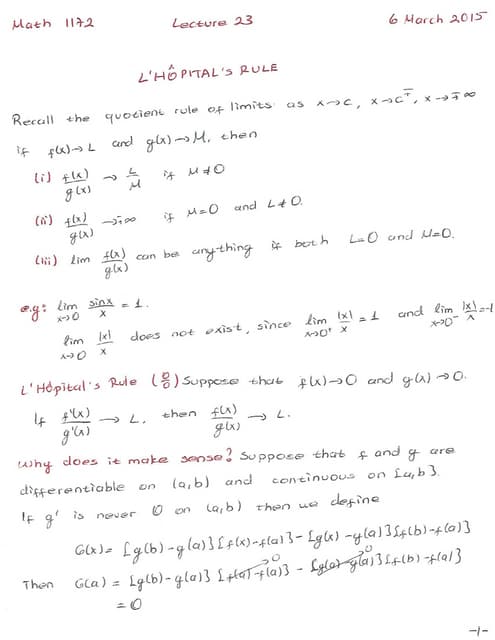 Math 1172 Lecture 23 6 March 2015
L'HÔPITAL'S RULE
Recall the quotient rule of limits: as x→c, x→c∓, x→∓∞
if f(x)→L and g(x)→M, then
(i) f(x)/g(x) → L/M if M≠0
(ii) f(x)/g(x) → ∓∞ if M=0 and L≠0.
(iii) lim f(x)/g(x) can be anything if both L=0 and M=0.
e.g: lim x→0 sinx/x = 1.
lim x→0 |x|/x does not exist, since lim x→0⁺ |x|/x = 1 and lim x→0⁻ |x|/x = -1
L'Hôpital's Rule (0/0) Suppose that f(x)→0 and g(x)→0.
If f'(x)/g'(x) → L, then f(x)/g(x) → L.
Why does it make sense? Suppose that f and g are
differentiable on (a,b) and continuous on [a,b].
If g' is never 0 on (a,b) then we define
G(x) = [g(b)-g(a)][f(x)-f(a)] - [g(x)-g(a)][f(b)-f(a)]
Then G(a) = [g(b)-g(a)][f(a)-f(a)]→0 - [g(a)-g(a)]→0[f(b)-f(a)]
= 0
-1-